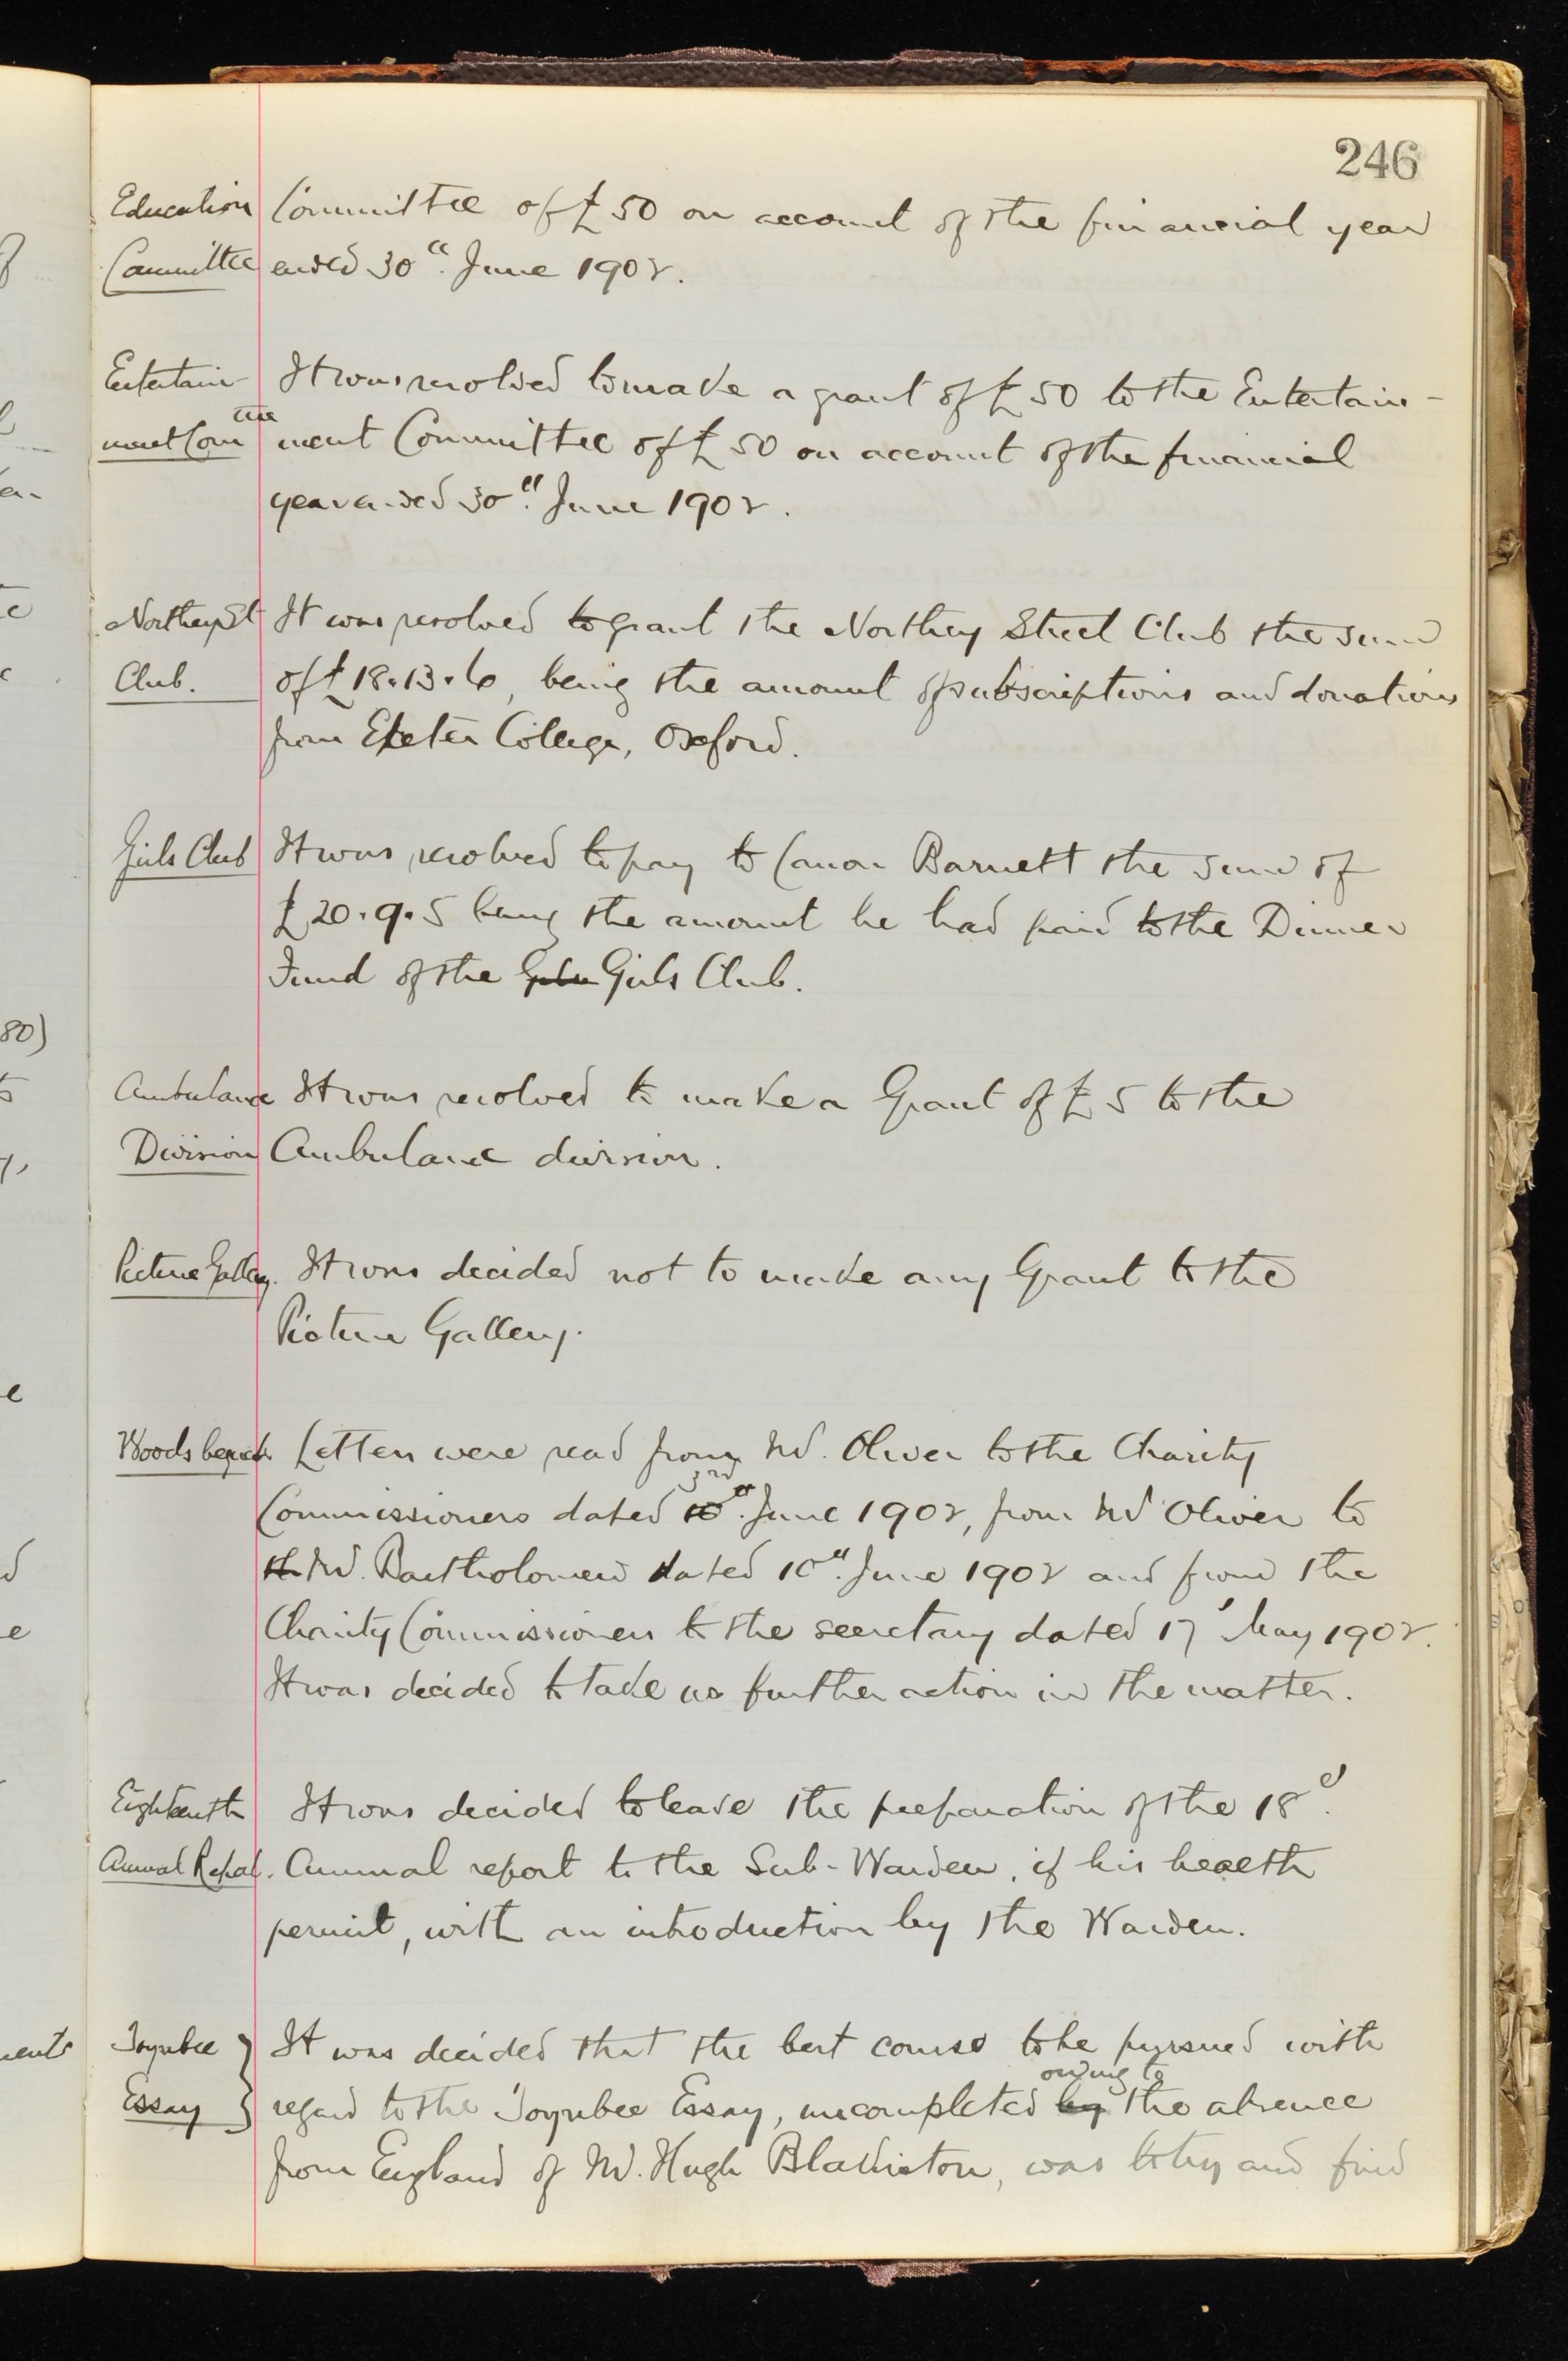 246
Education Committee of £50 on account of the financial year
Committee ended 30th. June 1902.
Entertain- It was resolved to make a grant of £50 to the Entertain-
ment Com tee ment Committee of £50 on account of the financial
year ended 30th. June 1902.
Northey St It was resolved to grant the Northey Street Club the sum
Club. of £18.13.6, being the amount of subscriptions and donations
from Exeter College, Oxford.
Girls Club It was resolved to pay to Canon Barnett the sum of
£20.9.5 being the amount he had paid to the Dinner
Fund of the Girls Club.
Ambulance It was resolved to make a Grant of £5 to the
Division Ambulance division.
Picture Gallery. It was decided not to make any Grant to the
Picture Gallery.
Woods bequest Letters were read from Mr. Oliver to the Charity
3rd
Commissioners dated 10th. June 1902, from Mr Oliver to
th Mr. Bartholomew dated 10th. June 1902 and from the
Charity Commissioners to the secretary dated 17 May 1902.
It was decided to take no further action in the matter.
Eighteenth It was decided to leave the preparation of the 18th.
Annual Report. Annual report to the Sub-Warden, if his health
permit, with an introduction by the Warden.
Toynbee } It was decided that the best course to be pursued with
owing to
Essay } regard to the Toynbee Essay, uncompleted by the absence
from England of Mr. Hugh Blakiston, was to try and find